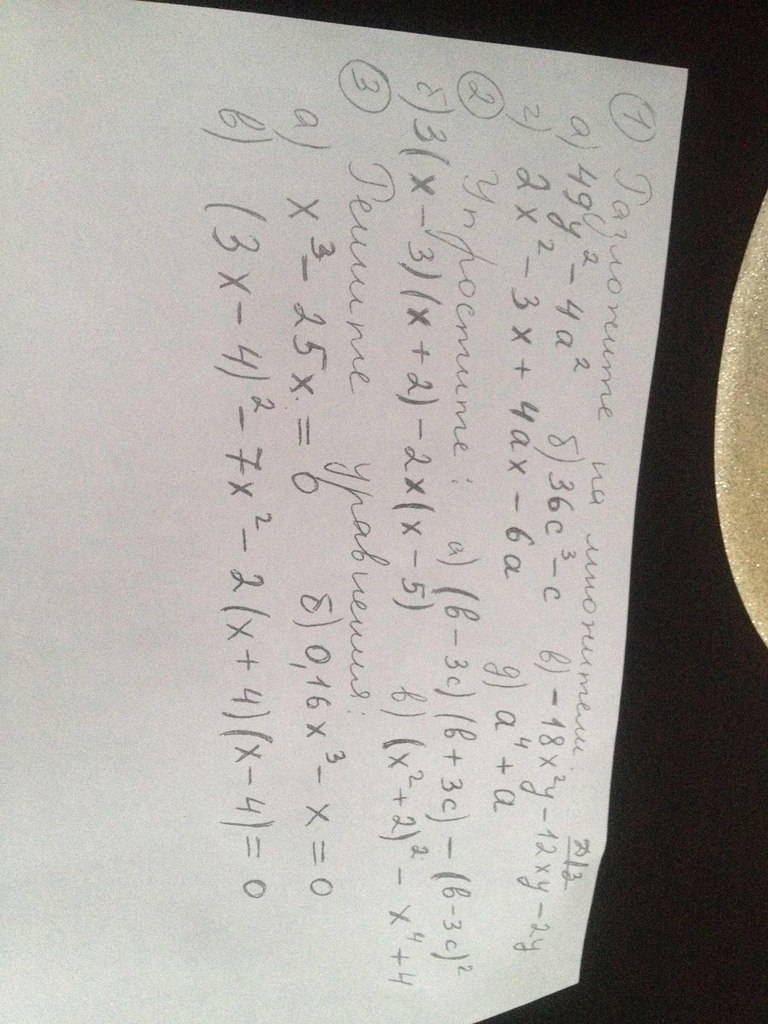 д/з
① Разложите на множители:
а) 49y² - 4a² б) 36c³ - c в) -18x²y - 12xy - 2y
г) 2x² - 3x + 4ax - 6a д) a⁴ + a
② Упростите: а) (b - 3c)(b + 3c) - (b - 3c)²
б) 3(x - 3)(x + 2) - 2x(x - 5) в) (x² + 2)² - x⁴ + 4
③ Решите уравнения:
а) x³ - 25x = 0 б) 0,16x³ - x = 0
в) (3x - 4)² - 7x² - 2(x + 4)(x - 4) = 0